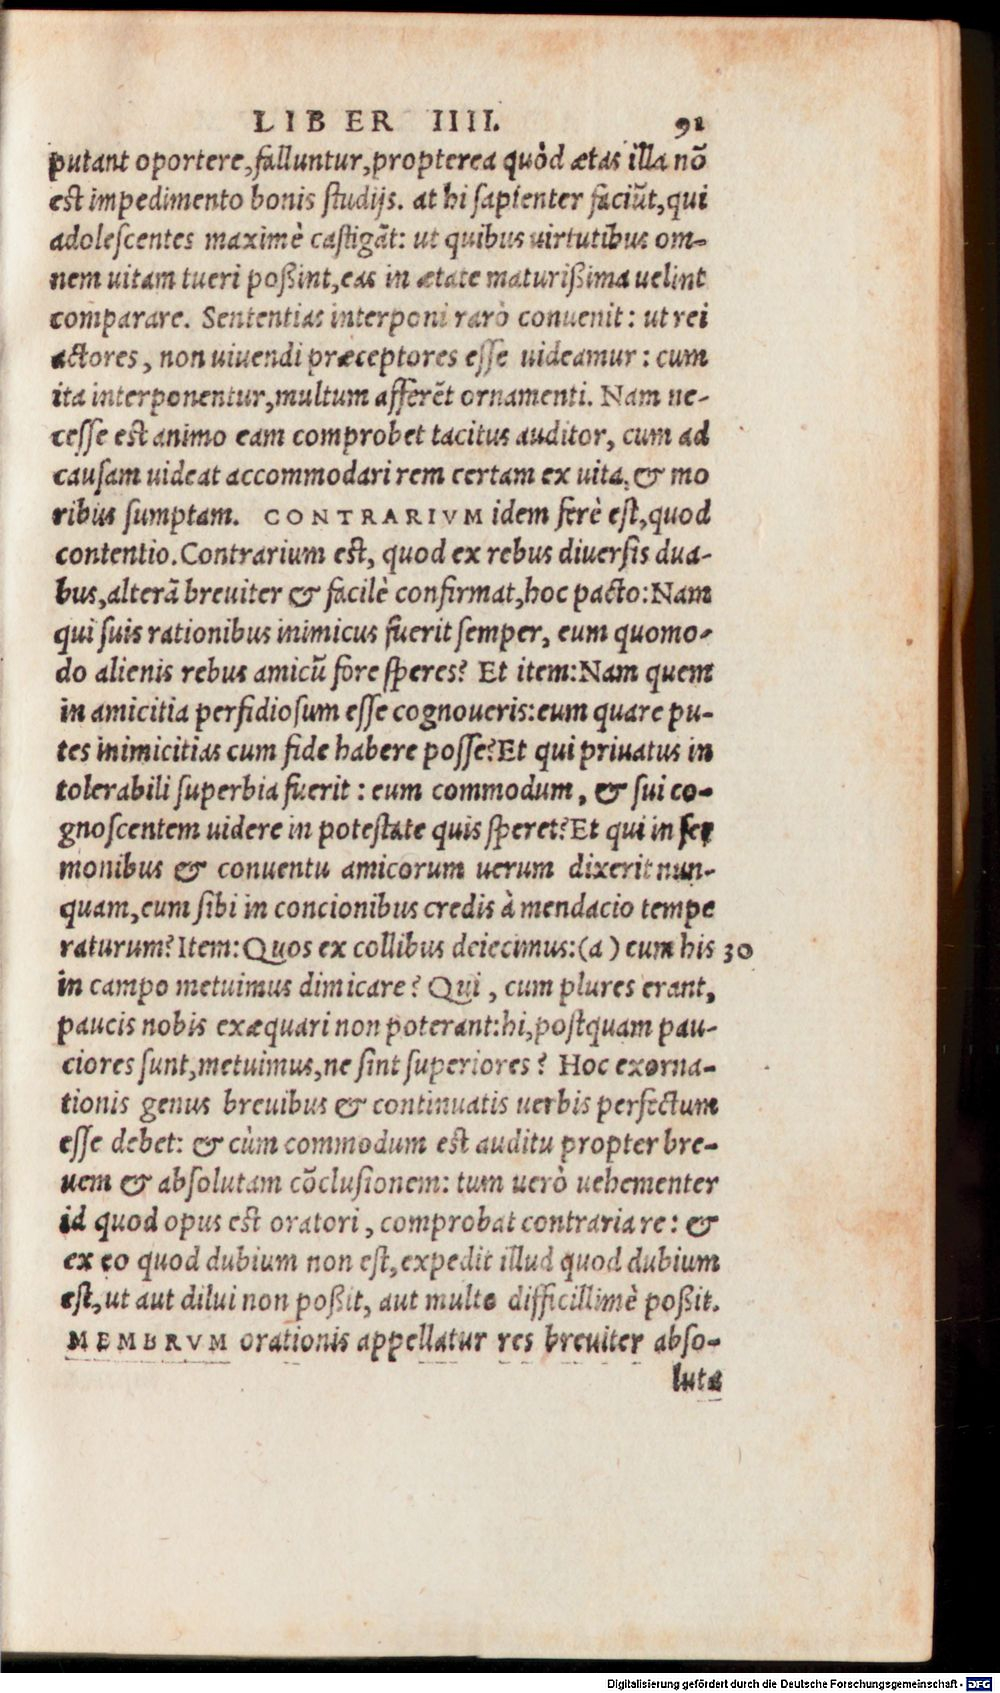 LIBER IIII. 91
putant oportere, falluntur, propterea quòd ætas illa nõ
est impedimento bonis studijs. at hi sapienter faciũt, qui
adolescentes maximè castigãt: ut quibus uirtutibus om-
nem uitam tueri poßint, eas in ætate maturißima uelint
comparare. Sententias interponi rarò conuenit: ut rei
actores, non uiuendi præceptores esse uideamur: cum
ita interponentur, multum afferẽt ornamenti. Nam ne-
cesse est animo eam comprobet tacitus auditor, cum ad
causam uideat accommodari rem certam ex uita, & mo
ribus sumptam. CONTRARIVM idem ferè est, quod
contentio. Contrarium est, quod ex rebus diuersis dua-
bus, alterã breuiter & facilè confirmat, hoc pacto: Nam
qui suis rationibus inimicus fuerit semper, eum quomo-
do alienis rebus amicũ fore speres? Et item: Nam quem
in amicitia perfidiosum esse cognoueris: eum quare pu-
tes inimicitias cum fide habere posse? Et qui priuatus in
tolerabili superbia fuerit: eum commodum, & sui co-
gnoscentem uidere in potestate quis speret? Et qui in ser
monibus & conuentu amicorum uerum dixerit nun-
quam, eum sibi in concionibus credis à mendacio tempe
raturum? Item: Quos ex collibus deiecimus: (a) cum his 30
in campo metuimus dimicare? Qui, cum plures erant,
paucis nobis exæquari non poterant: hi, postquam pau-
ciores sunt, metuimus, ne sint superiores? Hoc exorna-
tionis genus breuibus & continuatis uerbis perfectum
esse debet: & cùm commodum est auditu propter bre-
uem & absolutam cõclusionem: tum uerò uehementer
id quod opus est oratori, comprobat contraria re: &
ex eo quod dubium non est, expedit illud quod dubium
est, ut aut dilui non poßit, aut multo difficillimè poßit.
MEMBRVM orationis appellatur res breuiter abso-
luta
Digitalisierung gefördert durch die Deutsche Forschungsgemeinschaft - DFG